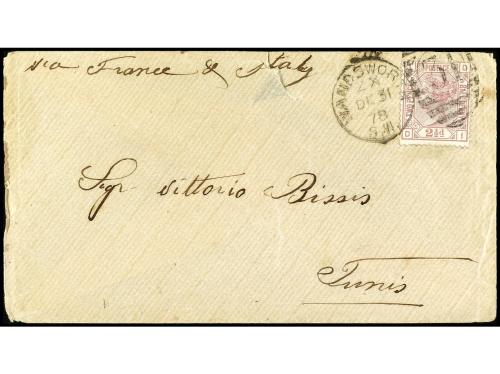 via France & Italy
WANDSWOR
ZX
DE 31
78
S.W.
POSTAGE
O
2½d
I
Sgr Vittorio Bissis
Tunis